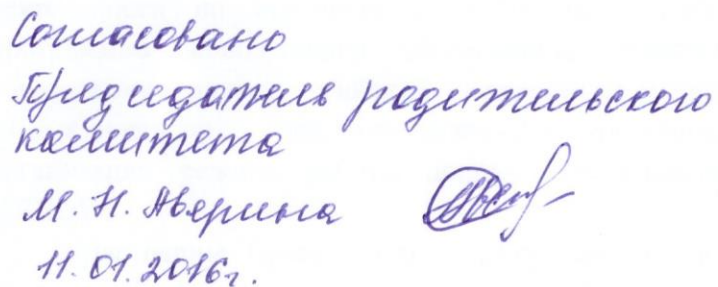 Согласовано
Председатель родительского
комитета
М. Н. Аверина
11.01.2016г.